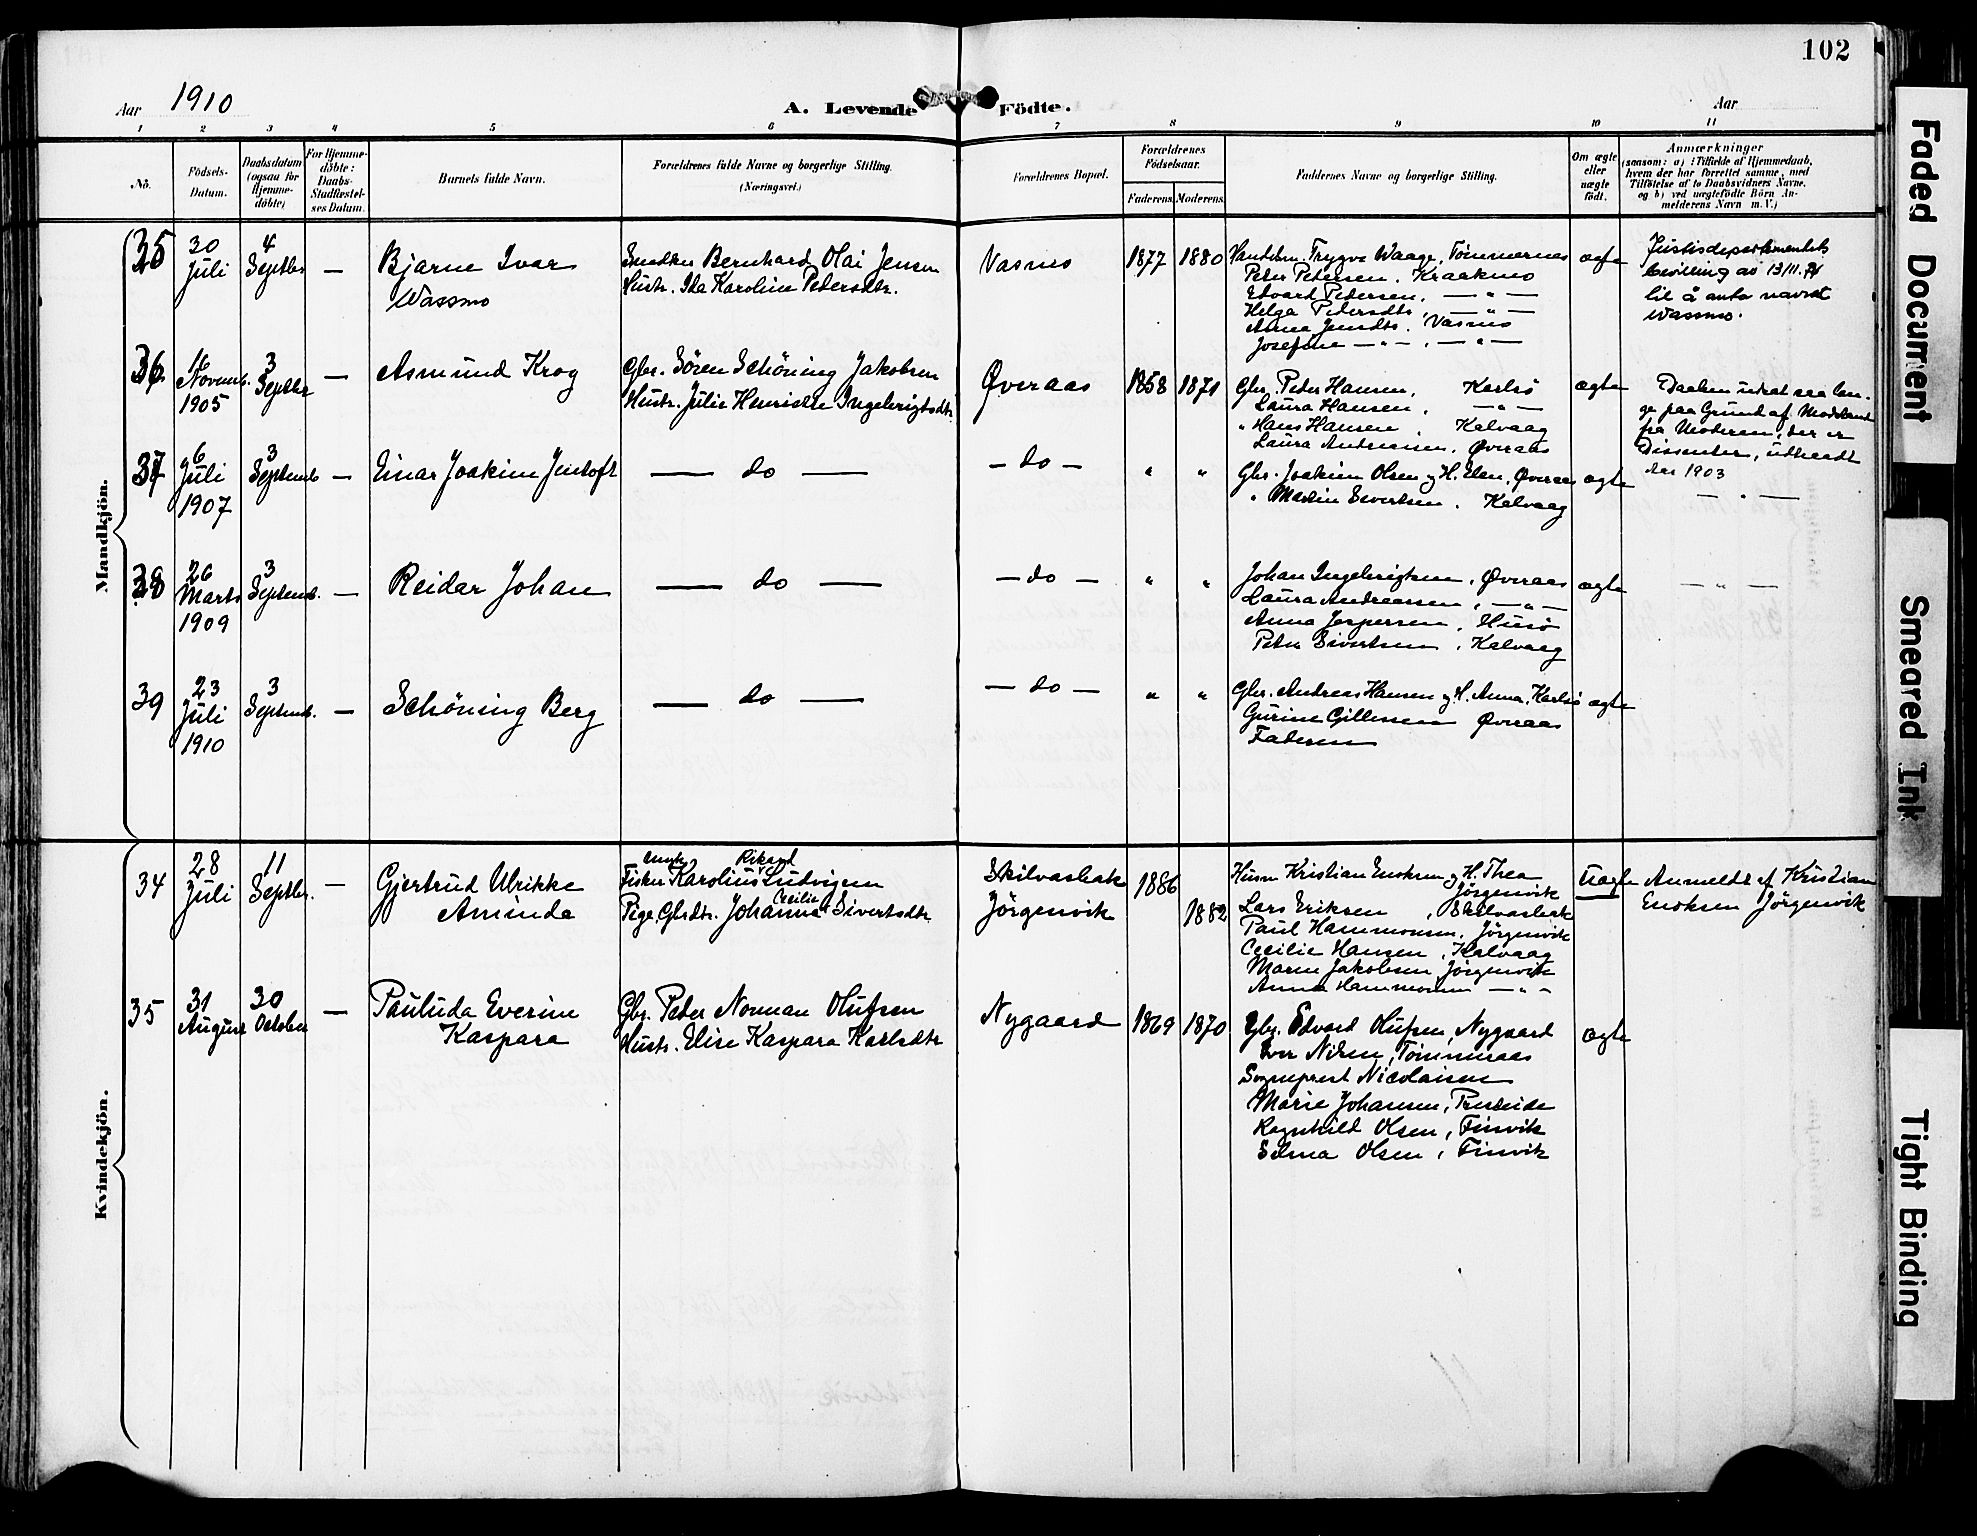 102
Aar 1910
A. Levende Födte.
Aar
1 2 3 4 5 6 7 8 9 10 11
No.
Födsels-Datum.
Daabsdatum (ogsaa for Hjemme-döbte)
For Hjemme-döbte: Daabs-Stadfæstel-ses Datum.
Barnets fulde Navn.
Forældrenes fulde Navne og borgerlige Stilling.
(Næringsvei.)
Forældrenes Bopæl.
Forældrenes Födselsaar.
Faderens Moderens
Faddernes Navne og borgerlige Stilling.
Om ægte eller uægte födt.
Anmærkninger
(saasom: a) i Tilfælde af Hjemmedaab,
hvem der har forrettet samme, med
Tilföielse af to Daabsvidners Navne,
og b) ved uægtefödte Börn An-
melderens Navn m. V.)
Mandkjön.
35
30 Juli
4 Septbr
—
Bjarne Ivar
Wassmo
Snedker Bernhard Olai Jensen
Hustr. Ida Karoline Pedersdtr.
Vasmo
1877 1880
Handelsm. Trygve Waage, Tømmernes
Peter Petersen, Kraakmo
Edvard Pedersen, — " —
Helga Pedersdtr, — " —
Anna Jensdtr. Vasmo
Josefine — " — , — " —
ægte
Justisdepartementets
bevilling av 13/11.
til å anta navnet
Wassmo.
36
16 Novemb. 1905
3 Septbr
—
Asmund Krog
Gbr. Sören Schöning Jakobsen
Hustr. Julie Henriette Ingebrigtsdtr
Øveraas
1858 1871
Gbr. Peder Hansen, Karlsö
Laura Hansen, — " —
" Hans Hansen, Kalvaag
Laura Andreasen, Øveraas
ægte
Daaben udsat saa læn-
ge paa Grund af Modstand
fra Moderen, der er
Dissenter, udtraadt
Aar 1903
37
6 Juli 1907
3 Septemb
—
Einar Joakim Jentoft
— do —
— do —
" "
Gbr. Joakim Olsen og H. Elen, Øveraas
" Martin Sivertsen, Kalvaag
ægte
— " —
38
26 Marts 1909
3 Septemb.
—
Reidar Johan
— do —
— do —
" "
Johan Ingebrigtsen, Øveraas
Laura Andreassen, — " —
Anna Jespersen, Husö
Peter Sivertsen, Kalvaag
ægte
— " —
39
23 Juli 1910
3 Septemb.
—
Schöning Berg
— do —
— do —
" "
Gbr. Andreas Hansen og H. Anna, Karlsö
Gurine Gillessen Øveraas
Faderen
ægte
Kvindekjön.
34
28 Juli
11 Septbr.
—
Gjertrud Ulrikke
Aminda
Rikard
Fisker Karolius Ludvigsen
Cecilie
Pige, Gbrdtr. Johanna Sivertsdtr
Skilvasbak
Jörgenvik
1886
1882
Husm Kristian Enoksen og H. Thea
Jörgenvik
Lars Eriksen, Skilvasbak
Paul Hammonsen, Jörgenvik
Cecilie Hansen, Kalvaag
Maren Jakobsen Jörgenvik
Anna Hammonsen — " —
Uægte
Anmeldt af Kristian
Enoksen Jörgenvik
35
31 August
30 October
—
Pauluda Everine
Kaspara
Gbr. Peder Norman Olufsen
Hustr. Elise Kaspara Karlsdtr
Nygaard
1869 1870
Gbr. Edvard Olufsen, Nygaard
Iver Nilsen, Tömmeraas
Sogneprest Nicolaisen
Marie Johansen, Presteide
Ragnhild Olsen, Finvik
Selma Olsen, Finvik
ægte
Faded Document
Smeared Ink
Tight Binding